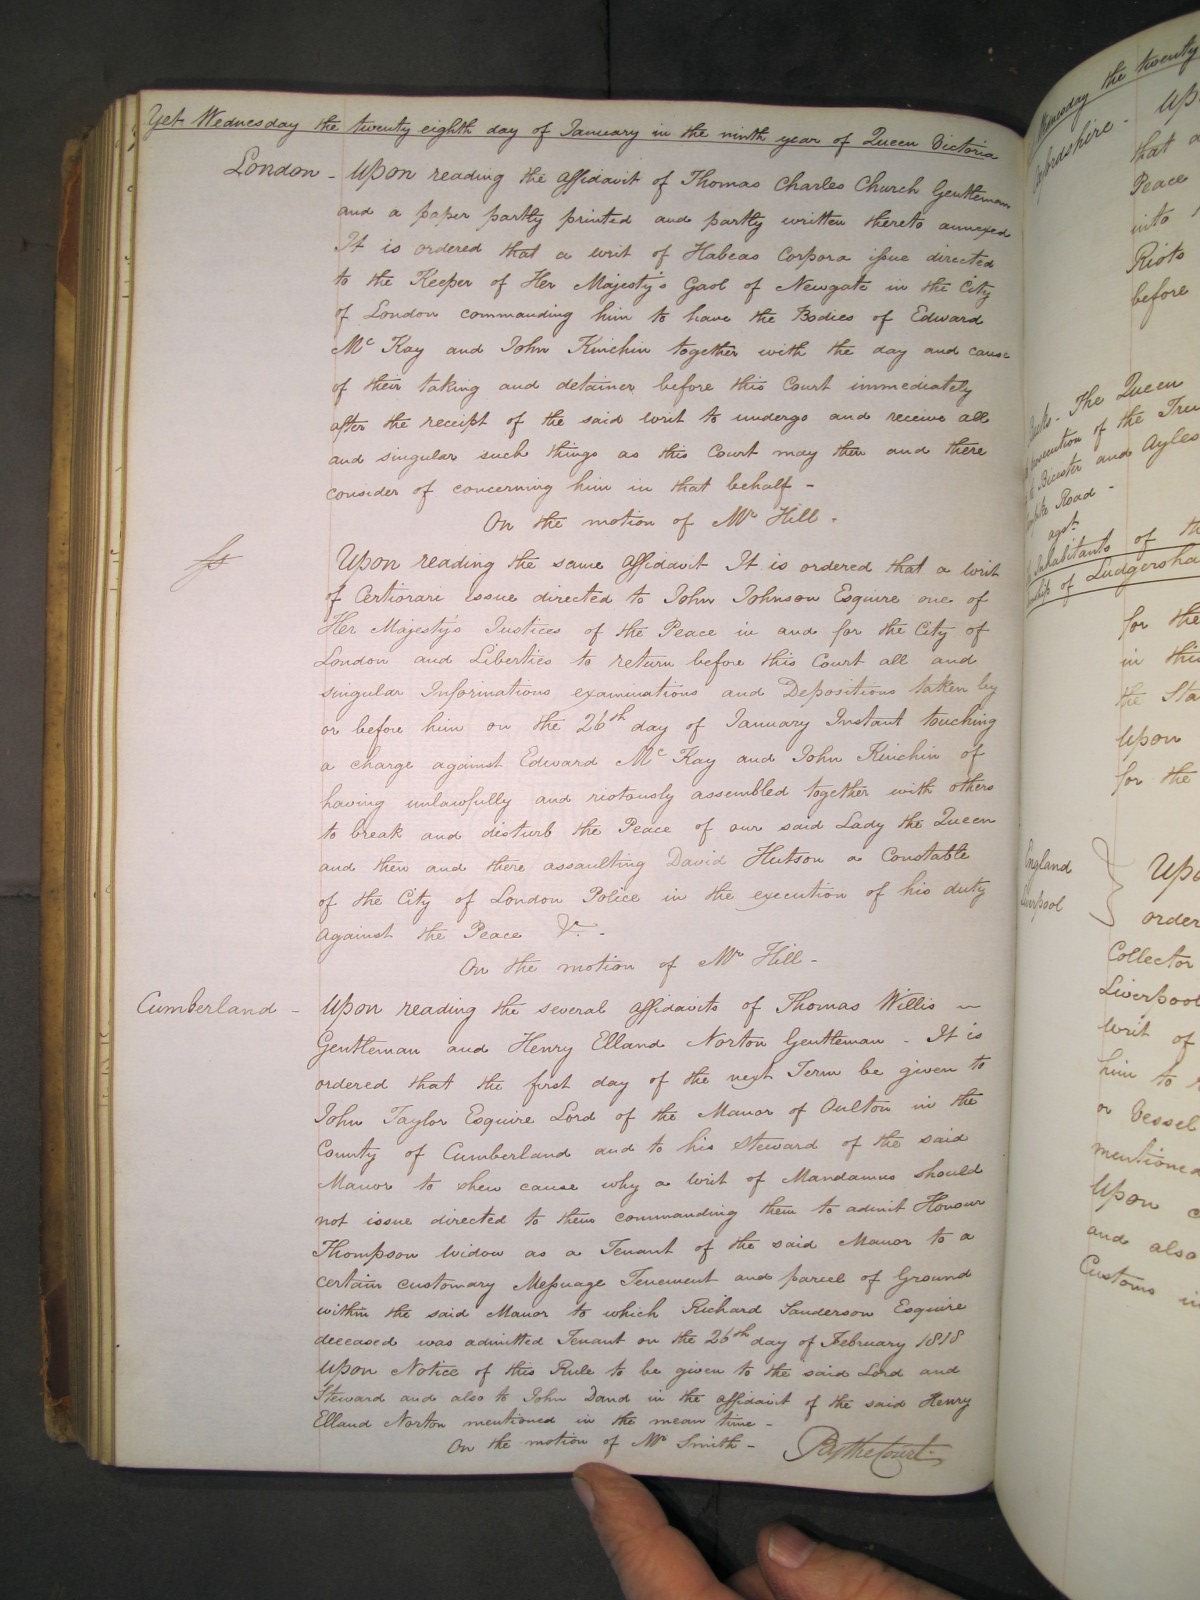 Yet Wednesday the twenty eighth day of January in the ninth year of Queen Victoria
London - Upon reading the affidavit of Thomas Charles Church Gentleman
and a paper partly printed and partly written thereto annexed
It is ordered that a writ of Habeas Corpora issue directed
to the Keeper of Her Majesty's Gaol of Newgate in the City
of London commanding him to have the Bodies of Edward
Mc Kay and John Kinchin together with the day and cause
of their taking and detainer before this Court immediately
after the receipt of the said writ to undergo and receive all
and singular such things as this Court may then and there
consider of concerning him in that behalf -
On the motion of Mr Hill.
Upon reading the same affidavit It is ordered that a writ
of Certiorari issue directed to John Johnson Esquire one of
Her Majesty's Justices of the Peace in and for the City of
London and Liberties to return before this Court all and
singular Informations examinations and Depositions taken by
or before him on the 26th day of January Instant touching
a charge against Edward Mc Kay and John Kinchin of
having unlawfully and riotously assembled together with others
to break and disturb the Peace of our said Lady the Queen
and then and there assaulting David Hutson a Constable
of the City of London Police in the execution of his duty
against the Peace &c. -
On the motion of Mr Hill -
Cumberland - Upon reading the several affidavits of Thomas Willis
Gentleman and Henry Elland Norton Gentleman - It is
ordered that the first day of the next Term be given to
John Taylor Esquire Lord of the Manor of Oulton in the
County of Cumberland and to his Steward of the said
Manor to shew cause why a writ of Mandamus should
not issue directed to them commanding them to admit Honour
Thompson Widow as a Tenant of the said Manor to a
certain customary Messuage Tenement and parcel of Ground
within the said Manor to which Richard Sanderson Esquire
deceased was admitted Tenant on the 26th day of February 1818
Upon Notice of this Rule to be given to the said Lord and
Steward and also to John Dand in the affidavit of the said Henry
Elland Norton mentioned in the mean time -
On the motion of Mr Smith - By the Court.
the twenty
Up
that a
Peace
into
Riots
before
The Queen
of the
Bicester and Ayles
Road -
agst.
Inhabitants of the
of Ludgersha
for the
in this
the Sta
Upon
for the
England
Liverpool
Upo
order
Collector
Liverpool
writ of
him to
or Vessel
mentioned
Upon
and also
Customs in